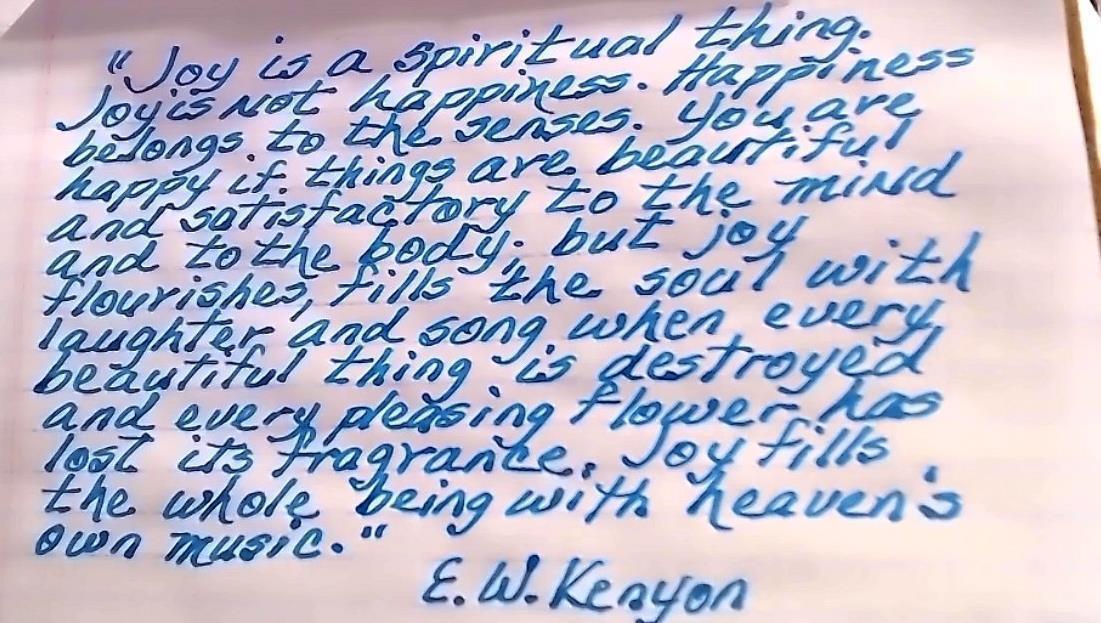 "Joy is a spiritual thing.
Joy is not happiness. Happiness
belongs to the senses. You are
happy if things are beautiful
and satisfactory to the mind
and to the body; but joy
flourishes, fills the soul with
laughter and song when every
beautiful thing is destroyed
and every pleasing flower has
lost its fragrance. Joy fills
the whole being with heaven's
own music."
E. W. Kenyon